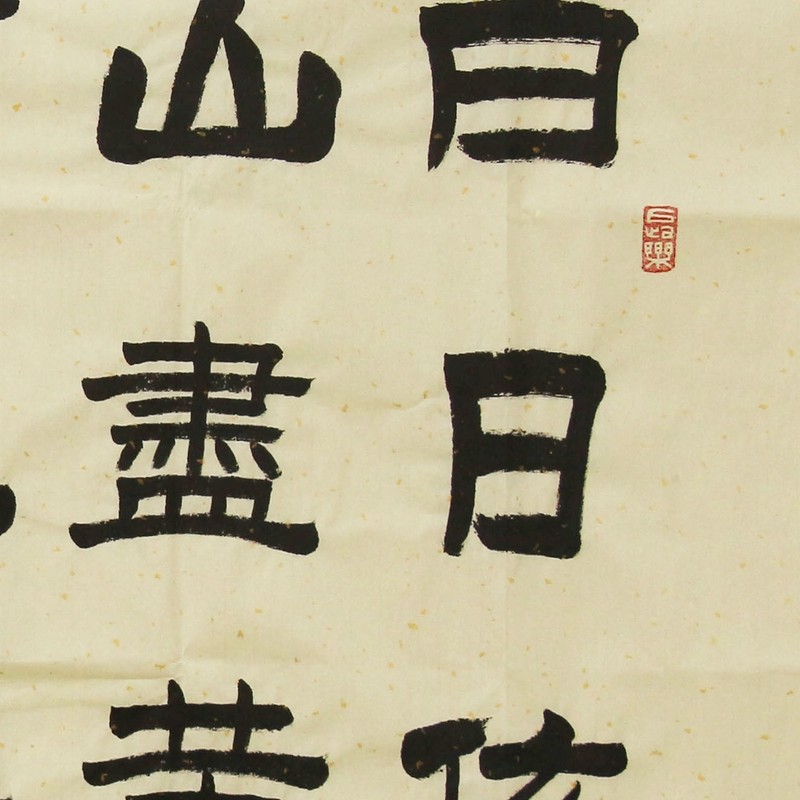 白日依
山盡黃